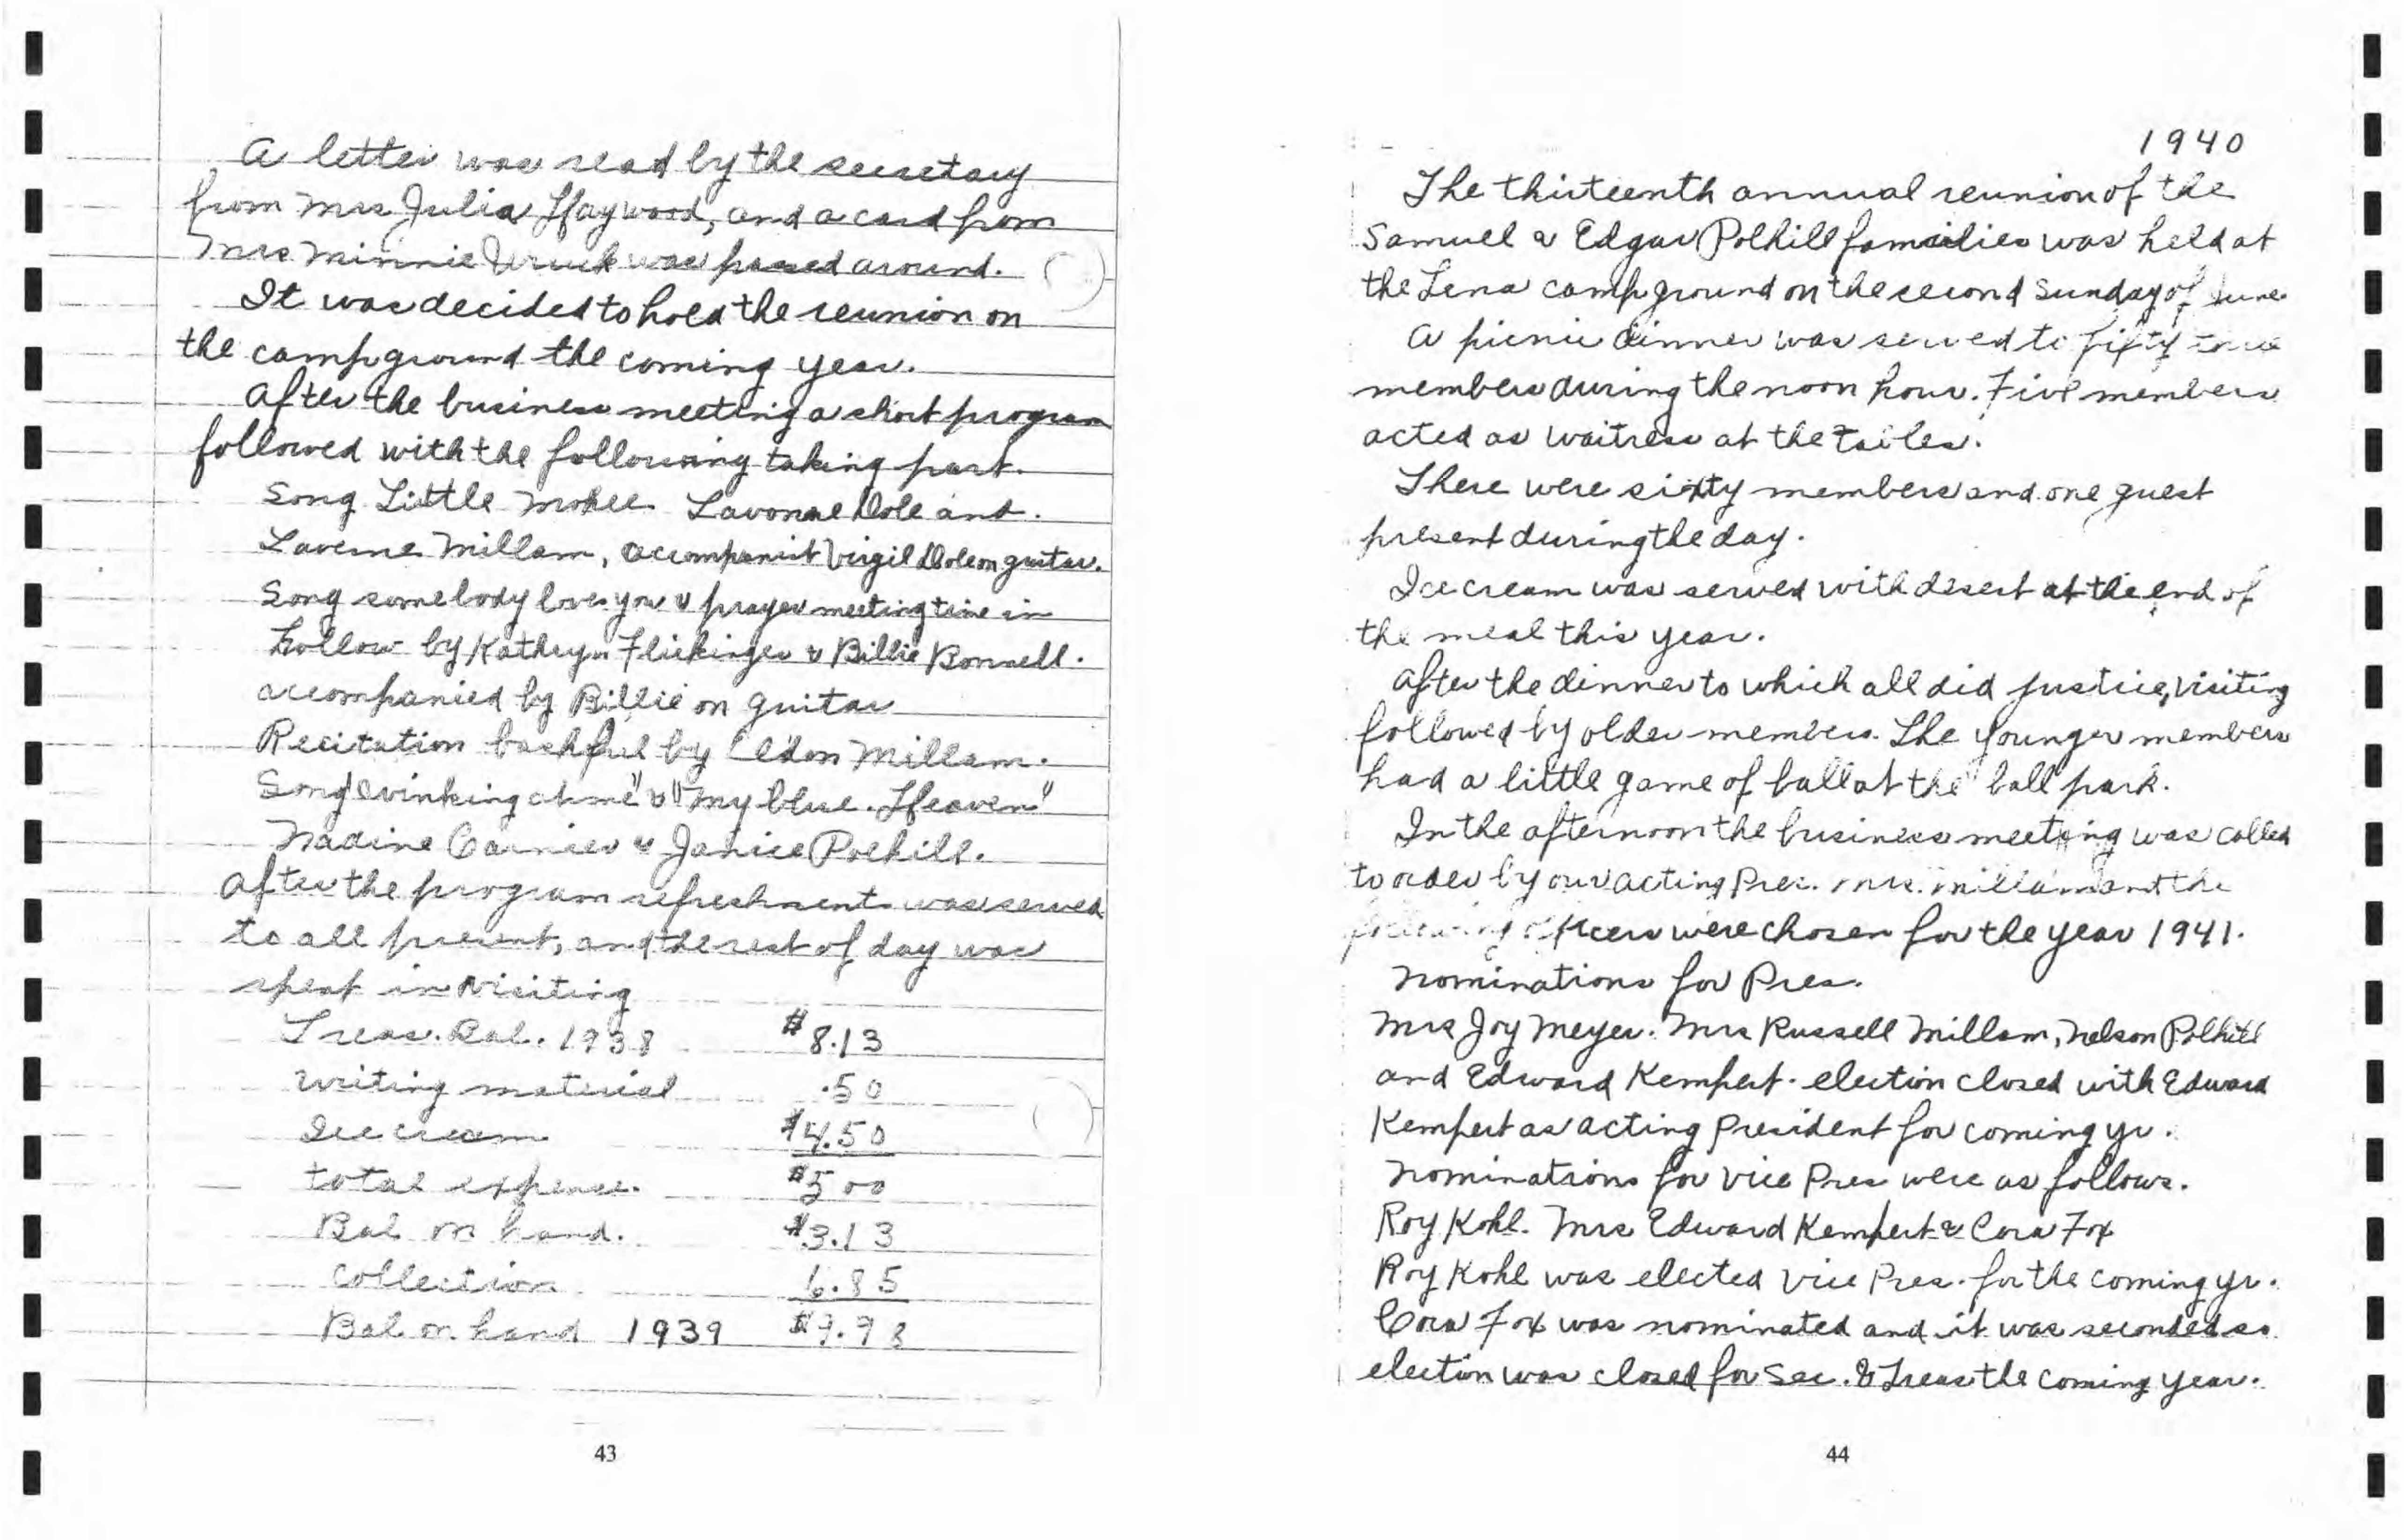 A letter was read by the secretary
from Mrs Julia Haywood, and a card from
Mrs Minnie was passed around.
It was decided to hold the reunion on
the campground the coming year.
After the business meeting a short program
followed with the following taking part.
Song Little Mohee Lavonne Dole and.
Laverne Millam, accompanist Virgil Dole on guitar.
Song somebody loves you & prayer meeting time in
hollow by Kathryn Flickinger & Billie Bonnell.
accompanied by Billie on guitar
Recitation bashful by Eldon Millam.
Song "winking at me" & "My blue. Heaven"
Nadine Carnier & Janice Polhill.
After the program refreshments was served
to all present, and the rest of day was
spent in visiting
Treas. Bal. 1938 $8.13
writing material .50
Ice cream $4.50
total expense. $5 00
Bal on hand. $3.13
collection 6.85
Bal on hand 1939 $9.98
43
1940
The thirteenth annual reunion of the
Samuel & Edgar Polhill families was held at
the Lena campground on the second Sunday of June
A picnic dinner was served to fifty
members during the noon hour. Five members
acted as waitress at the tables.
There were sixty members and one guest
present during the day.
Ice cream was served with desert at the end of
the meal this year.
After the dinner to which all did justice, visiting
followed by older members. The younger members
had a little game of ball at the ball park.
In the afternoon the business meeting was called
to order by our acting Pres. Mrs. Millam and the
following officers were chosen for the year 1941.
Nominations for Pres.
Mrs Joy Meyer. Mrs Russell Millam, Nelson Polhill
and Edward Kempert. election closed with Edward
Kempert as acting President for coming yr.
Nominations for Vice Pres were as follows.
Roy Kohl. Mrs Edward Kempert & Cora Fox
Roy Kohl was elected Vice Pres. for the coming yr.
Cora Fox was nominated and it was seconded so
election was closed for Sec. & Treas the coming year.
44